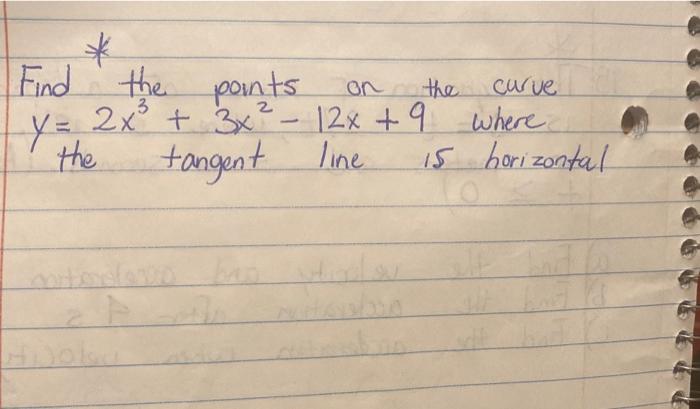 *
Find the points on the curve
y = 2x³ + 3x² - 12x + 9 where
the tangent line is horizontal